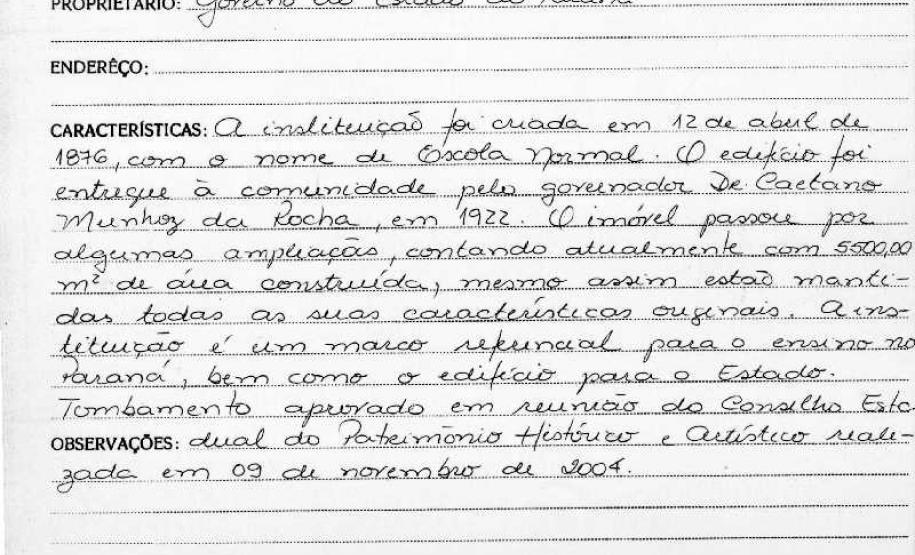 PROPRIETÁRIO: Governo do Estado do Paraná
ENDERÊÇO:
CARACTERÍSTICAS: A instituição foi criada em 12 de abril de
1876, com o nome de Escola Normal. O edifício foi
entregue à comunidade pelo governador Dr. Caetano
Munhoz da Rocha, em 1922. O imóvel passou por
algumas ampliações, contando atualmente com 5500,00
m² de área construída, mesmo assim estão manti-
das todas as suas características originais. A ins-
tituição é um marco referencial para o ensino no
Paraná, bem como o edifício para o Estado.
Tombamento aprovado em reunião do Conselho Esta
OBSERVAÇÕES: dual do Patrimônio Histórico e Artístico reali-
zada em 09 de novembro de 2004.